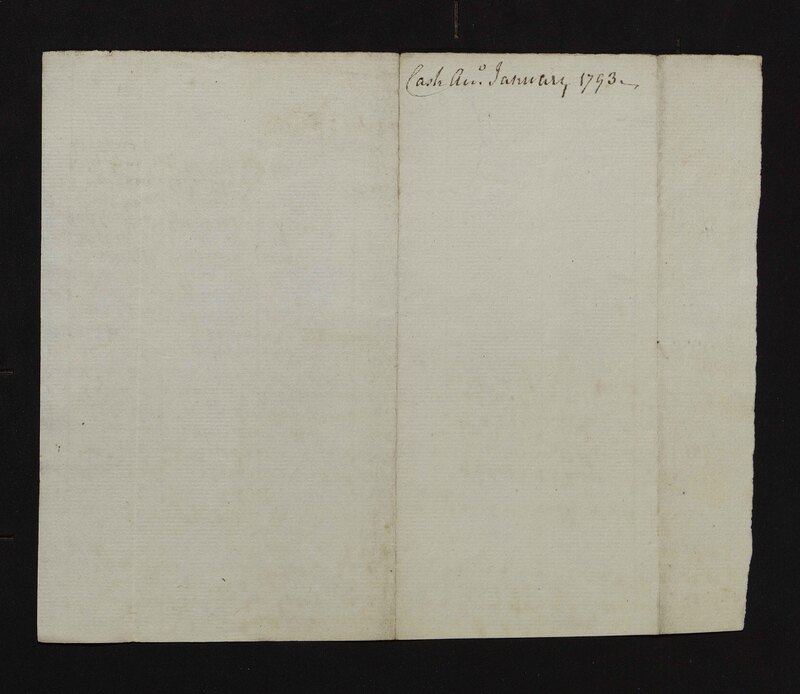 Cash Acc.º January 1793